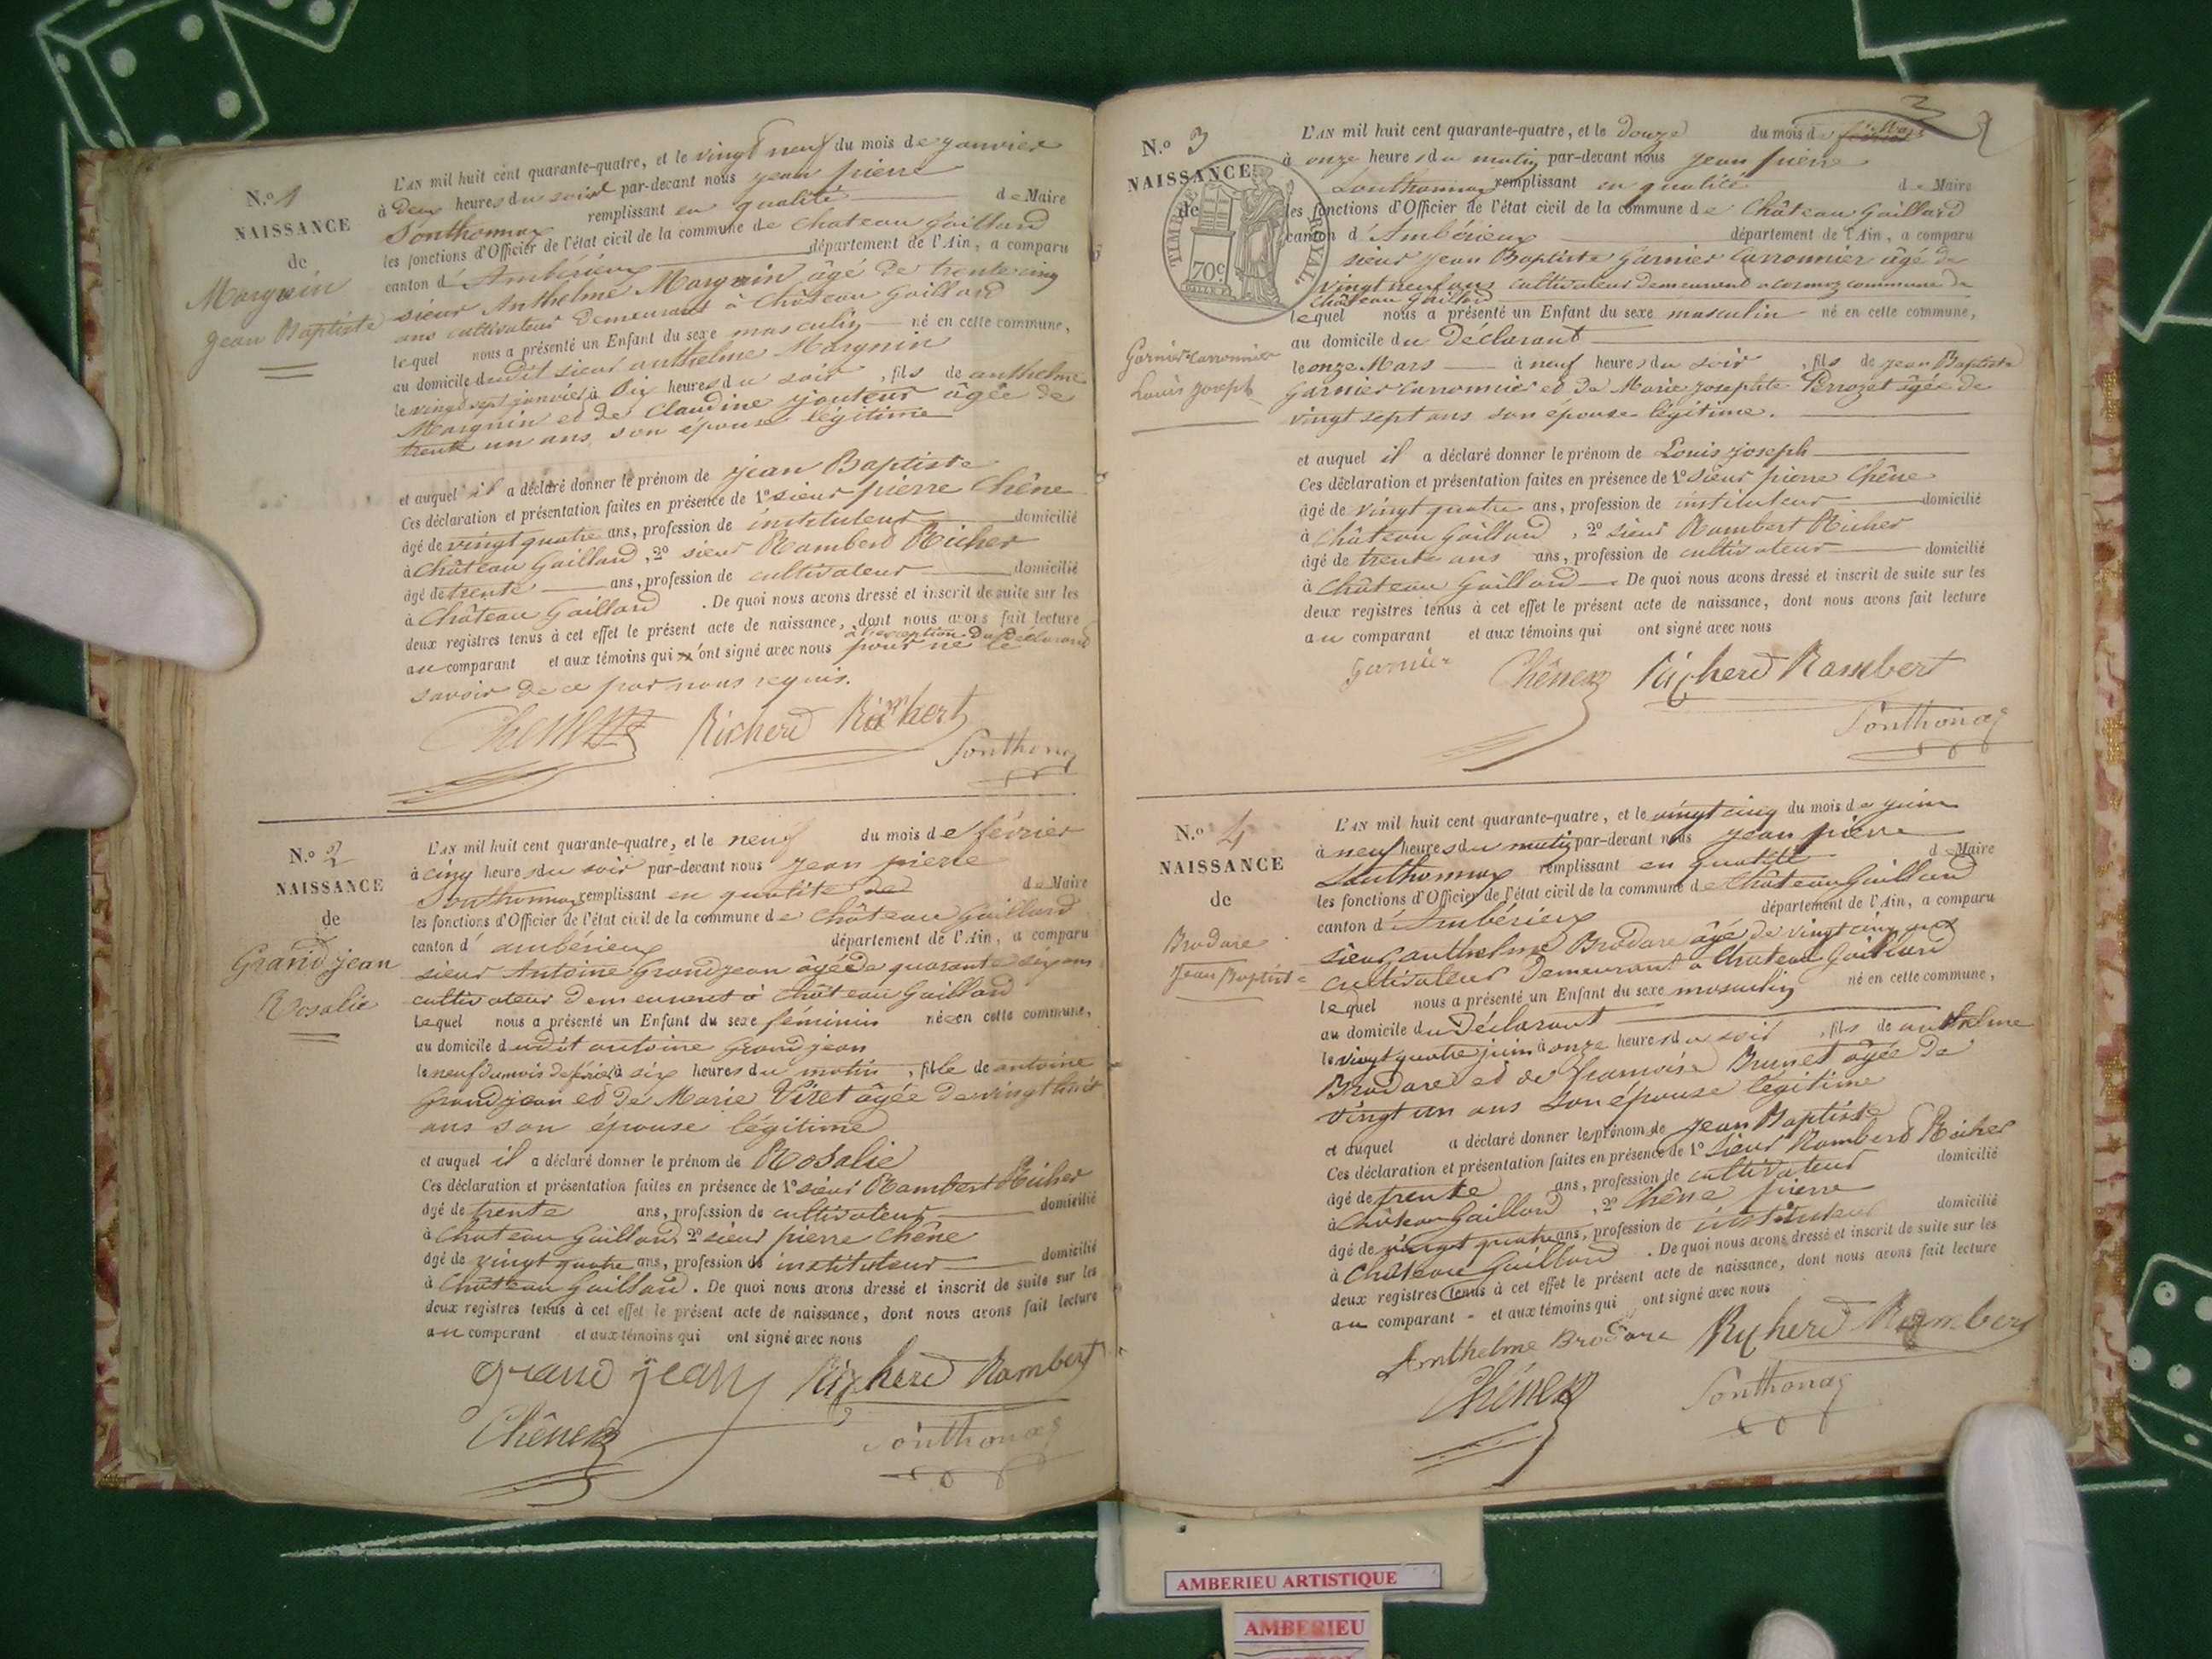 N.º 1
NAISSANCE
de
Margnin
Jean Baptiste
L'AN mil huit cent quarante-quatre, et le vingt neuf du mois de janvier
à deux heures du soir par-devant nous jean pierre
Sonthonnax remplissant en qualité de Maire
les fonctions d'Officier de l'état civil de la commune de chateau Gaillard
canton d'Ambérieux département de l'Ain, a comparu
sieur Anthelme Margnin âgé de trente cinq
ans cultivateur demeurant à Château Gaillard
lequel nous a présenté un Enfant du sexe masculin né en cette commune,
au domicile dudit sieur anthelme Margnin
le vingt sept janvier à dix heures du soir, fils de anthelme
Margnin et de Claudine jouteur âgée de
trente un ans, son épouse légitime
et auquel il a déclaré donner le prénom de jean Baptiste
Ces déclaration et présentation faites en présence de 1º sieur pierre Chêne
âgé de vingt quatre ans, profession de instituteur domicilié
à Château Gaillard, 2º sieur Rambert Richer
âgé de trente ans, profession de cultivateur domicilié
à Château Gaillard. De quoi nous avons dressé et inscrit de suite sur les
deux registres tenus à cet effet le présent acte de naissance, dont nous avons fait lecture
à l'exception du déclarant
au comparant et aux témoins qui ont signé avec nous pour ne le
savoir de ce par nous requis.
Richerd Rambert
Sonthonax
N.º 2
NAISSANCE
de
Grandjean
Rosalie
L'AN mil huit cent quarante-quatre, et le neuf du mois de février
à cinq heures du soir par-devant nous jean pierre
Sonthonnax remplissant en qualité de de Maire
les fonctions d'Officier de l'état civil de la commune de Château Gaillard
canton d' ambérieux département de l'Ain, a comparu
sieur Antoine Grandjean âgé de quarante six ans
cultivateur demeurant à Château Gaillard
lequel nous a présenté un Enfant du sexe féminin née en cette commune,
au domicile dudit antoine Grandjean
le neuf du mois de février à six heures du matin, fille de antoine
Grandjean et de Marie Viret âgée de vingt huit
ans son épouse légitime
et auquel il a déclaré donner le prénom de Rosalie
Ces déclaration et présentation faites en présence de 1º sieur Rambert Richer
âgé de trente ans, profession de cultivateur domicilié
à Chateau Gaillard 2º sieur pierre Chêne
âgé de vingt quatre ans, profession de instituteur domicilié
à Château Gaillard. De quoi nous avons dressé et inscrit de suite sur les
deux registres tenus à cet effet le présent acte de naissance, dont nous avons fait lecture
au comparant et aux témoins qui ont signé avec nous
grand jean Richerd Rambert
Chêne Sonthonax
N.º 3
NAISSANCE
de
TIMBRE ROYAL
70c
Garnier-Carronnier
Louis Joseph
L'AN mil huit cent quarante-quatre, et le douze du mois de Mars
à onze heures du matin par-devant nous jean pierre
Sonthonnax remplissant en qualité de Maire
les fonctions d'Officier de l'état civil de la commune de Château Gaillard
canton d'Ambérieux département de l'Ain, a comparu
sieur jean Baptiste Garnier Carronnier âgé de
vingt neuf ans cultivateur demeurant à cormoz commune de
Château Gaillard
lequel nous a présenté un Enfant du sexe masculin né en cette commune,
au domicile du Déclarant
le onze Mars à neuf heures du soir, fils de jean Baptiste
Garnier Carronnier et de Marie josephte Perrozet âgée de
vingt sept ans son épouse légitime.
et auquel il a déclaré donner le prénom de Louis joseph
Ces déclaration et présentation faites en présence de 1º sieur pierre Chêne
âgé de vingt quatre ans, profession de instituteur domicilié
à Château Gaillard, 2º sieur Rambert Richer
âgé de trente ans ans, profession de cultivateur domicilié
à Château Gaillard. De quoi nous avons dressé et inscrit de suite sur les
deux registres tenus à cet effet le présent acte de naissance, dont nous avons fait lecture
au comparant et aux témoins qui ont signé avec nous
Garnier Chêne Richerd Rambert
Sonthonax
N.º 4
NAISSANCE
de
Brodare
Jean Baptiste
L'AN mil huit cent quarante-quatre, et le vingt cinq du mois de juin
à neuf heures du matin par-devant nous jean pierre
Sonthonnax remplissant en qualité de Maire
les fonctions d'Officier de l'état civil de la commune de Château Gaillard
canton d'Ambérieux département de l'Ain, a comparu
sieur anthelme Brodare âgé de vingt cinq ans
cultivateur demeurant à Chateau Gaillard
lequel nous a présenté un Enfant du sexe masculin né en cette commune,
au domicile du Déclarant
le vingt quatre juin à onze heures du soir, fils de anthelme
Brodare et de françoise Brunet âgée de
vingt un ans son épouse légitime
et auquel a déclaré donner le prénom de jean Baptiste
Ces déclaration et présentation faites en présence de 1º sieur Rambert Richer
âgé de trente ans, profession de cultivateur domicilié
à Château Gaillard, 2º Chêne pierre
âgé de vingt quatre ans, profession de instituteur domicilié
à Château Gaillard. De quoi nous avons dressé et inscrit de suite sur les
deux registres tenus à cet effet le présent acte de naissance, dont nous avons fait lecture
au comparant et aux témoins qui ont signé avec nous
Anthelme Brodare Richerd Rambert
Chêne Sonthonax
AMBERIEU ARTISTIQUE
AMBERIEU